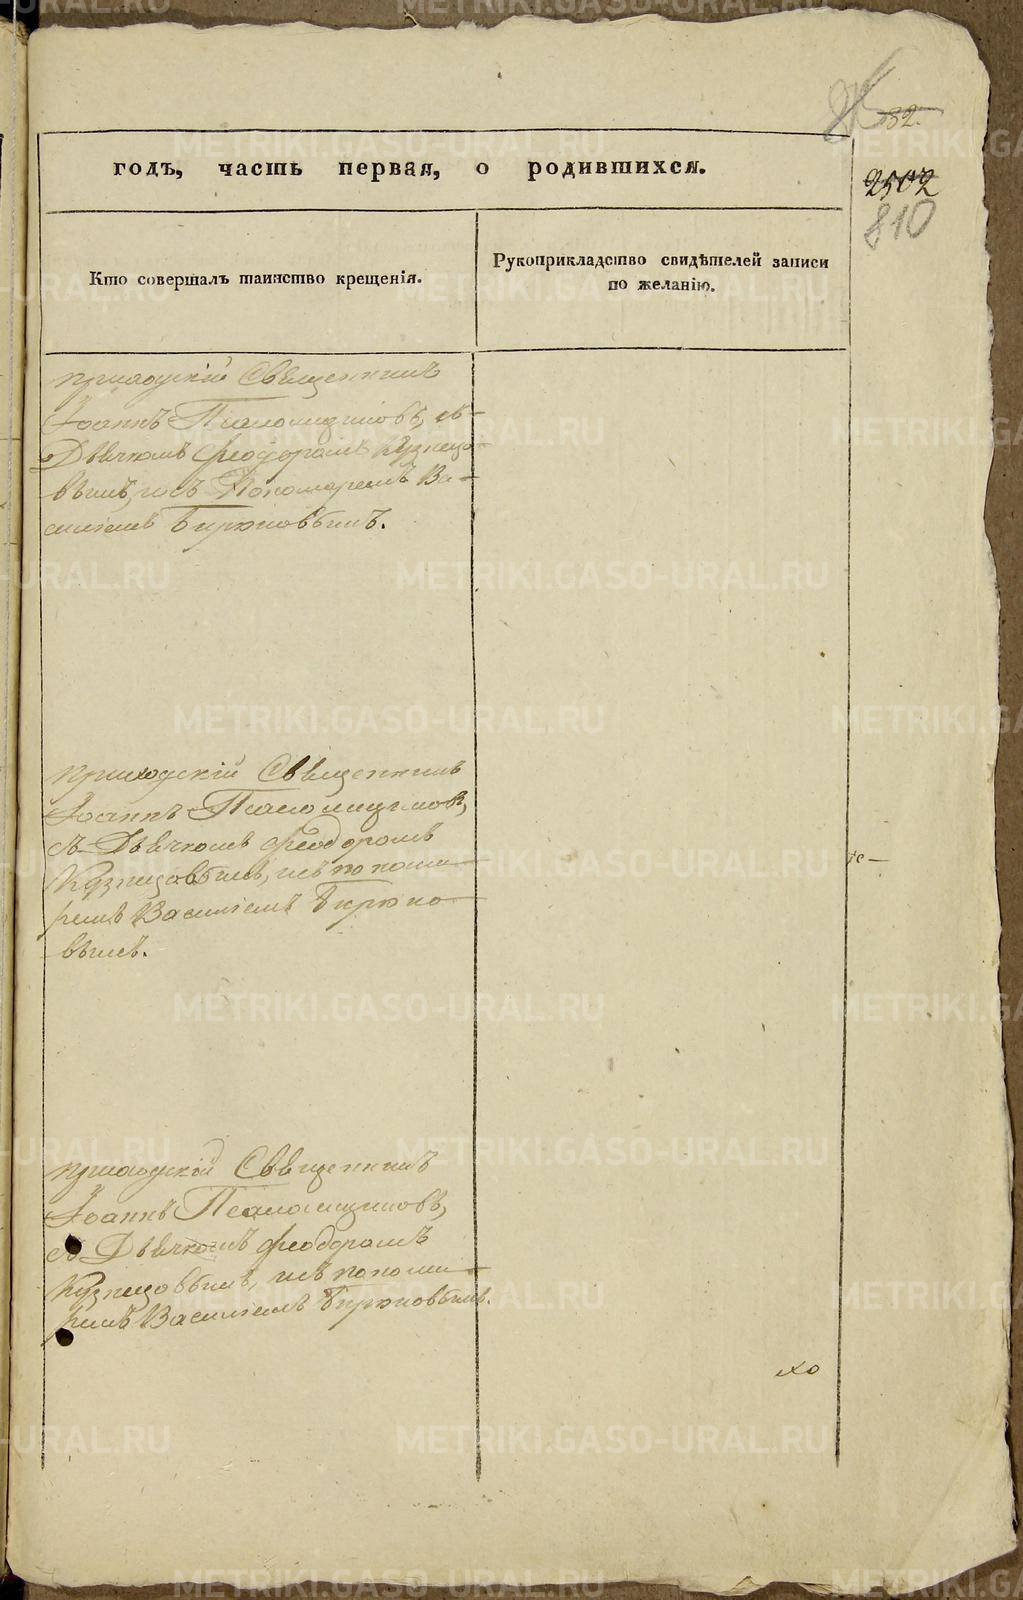 32.
годъ, часть первая, о родившихся.
2502
810
Кто совершалъ таинство крещенія.
Рукоприкладство свидѣтелей записи
по желанію.
приходскій Священникъ
Іоаннъ Псаломщиковъ, съ
Дьячкомъ Феодоромъ Кузнецо-
вымъ, и съ Пономаремъ Ва-
силіемъ Бирюковымъ.
приходскій Священникъ
Іоаннъ Псаломщиковъ,
съ Дьячкомъ Феодоромъ
Кузнецовымъ, и съ понома-
ремъ Василіемъ Бирюко-
вымъ.
приходскій Священникъ
Іоаннъ Псаломщиковъ,
съ Дьячкомъ Феодоромъ
Кузнецовымъ, и съ понома-
ремъ Василіемъ Бирюковымъ.
хо
METRIKI.GASO-URAL.RU